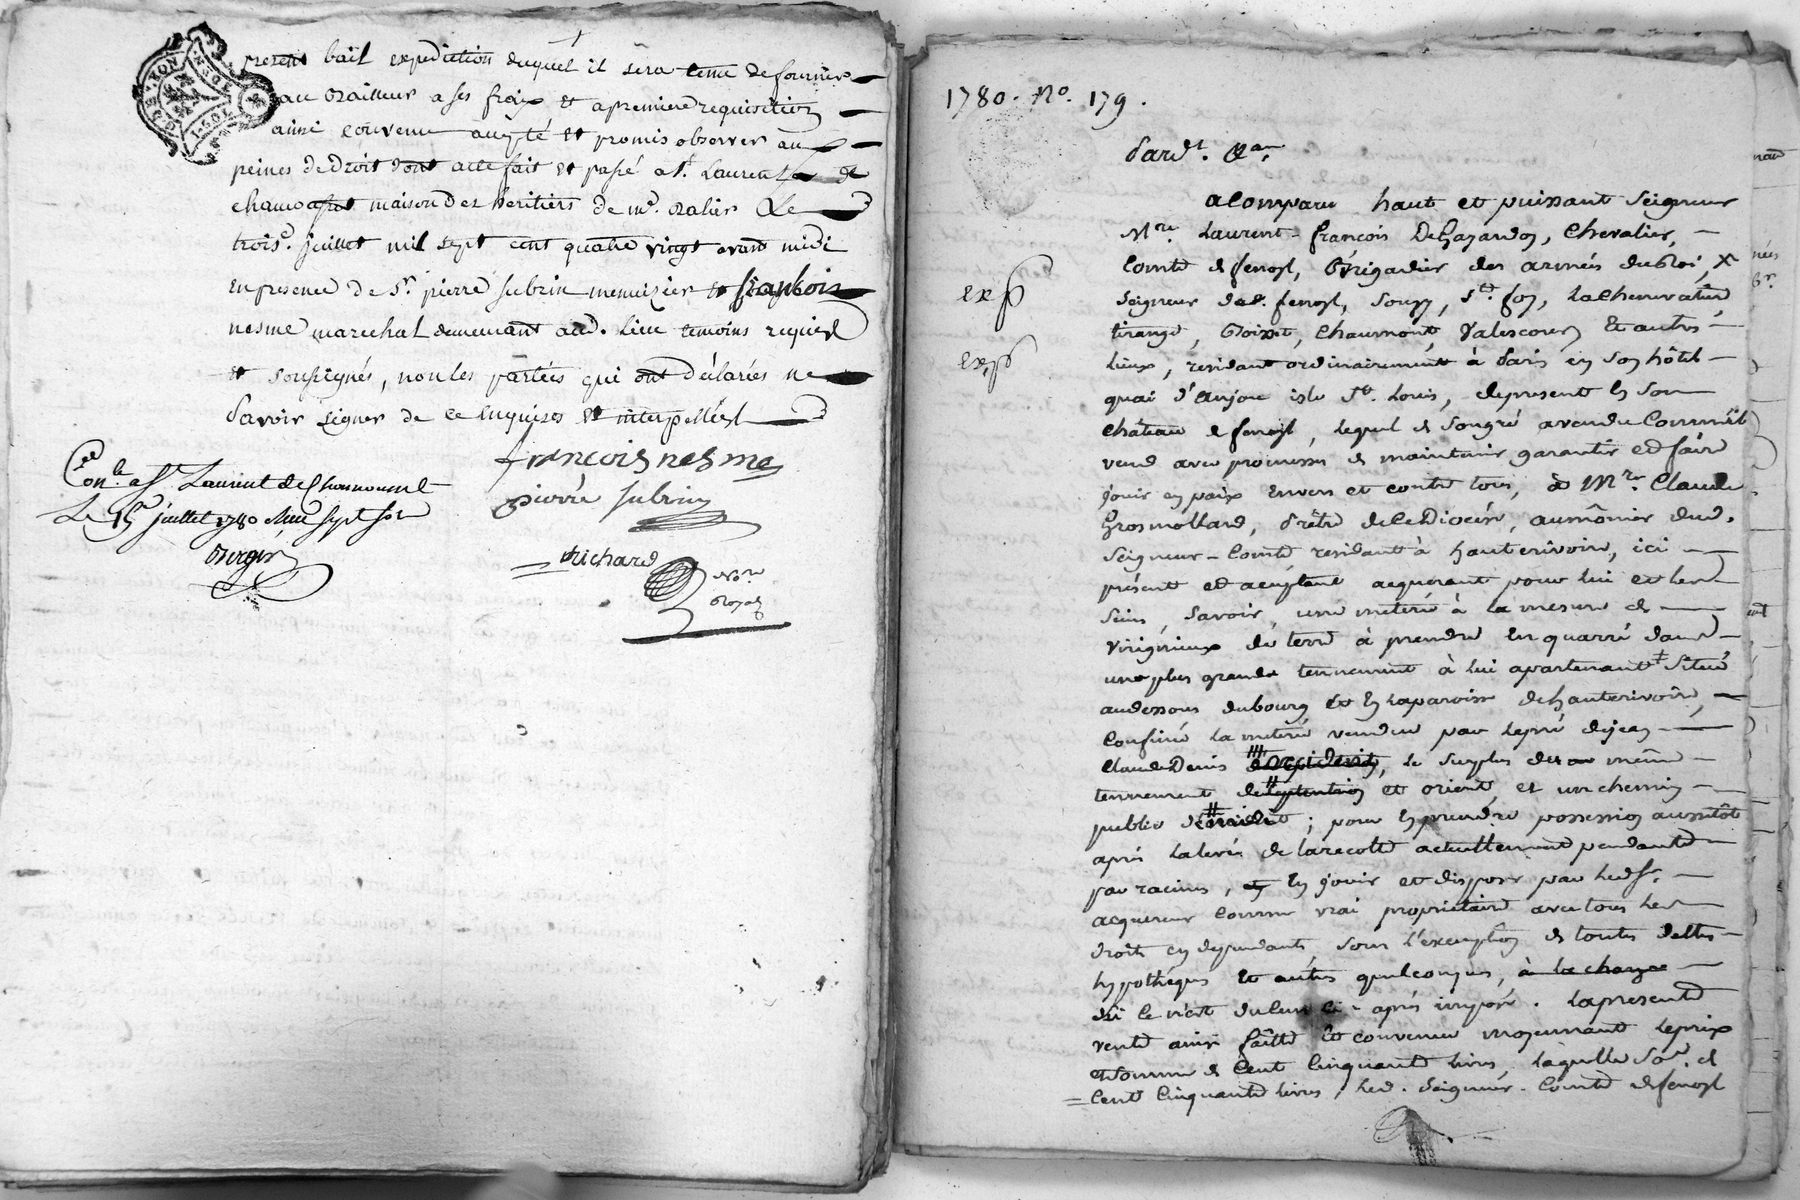 present bail expedition duquel il sera tenu de fournir
au Bailleur a ses fraix et a premiere requisition
ainsi convenu accepté et promis observer aux
peines de Droit dont acte fait et passé a St. Laurent de
chamousset maison des heritiers de me. Le
trois. juillet mil sept cent quatre vingt avant midi
en presence de Sr. pierre subrin menuizier et francois
nesme marechal demeurant aud. lieu temoins requis
et soussignés, non les parties qui ont déclarées ne
Savoir signer de ce enquises et interpellées
francois nesme
pierre subrin
Richard
Nore
Royal
Conlé a St Laurent de Chamousset
Le 15 juillet 1780 Reçu sept sols
1780. No. 179.
Pardt.
a Comparu haut et puissant Seigneur
Mre. Laurent-françois DeGayardon, Chevalier,
Comte de fenoyl, Brigadier des armées du Roi, x
Seigneur dud. fenoyl, Souzy, Ste. foy,
Chaumont, et autres
lieux, residant ordinairement à Paris en son hôtel
quai d'anjou isle St. Louis, de present en son
château de fenoyl, lequel de son gré a vendu Comme il
vend avec promesse de maintenir garantir et faire
jouir en paix envers et contre tous, à Mre. Claude
Grosmollard, Prêtre de ce Diocèse, aumônier dud.
Seigneur-Comte residant à hauterivoire, ici
présent et acceptant acquerant pour lui et les
siens, Savoir, une meterée à la mesure de
Virigneux de terre à prendre en quarré dans
une plus grande tennement à lui apartenant Situé
audessous du bourg et en la paroisse de hauterivoire,
Confiné la meterée vendue par le pré de jean
Claude Denis d'occident, le Surplus de même
tennement de septentrion et orient, et un chemin
public ; pour en prendre possession aussitôt
après la levée de la recolte actuellement pendante
par racines, en jouir et disposer par led. Sr.
acquereur Comme vrai proprietaire avec tous les
droits en dependants sous l'exemption de toutes dettes
hypothéques et autres quelconques, à la charge
si ce n'est de ci-après imposé. La presente
vente ainsi faitte et convenue moyennant le prix
et Somme de Cent Cinquante livres, laquelle So.e de
Cent Cinquante livres, led. Seigneur-Comte de fenoyl
exp
exp